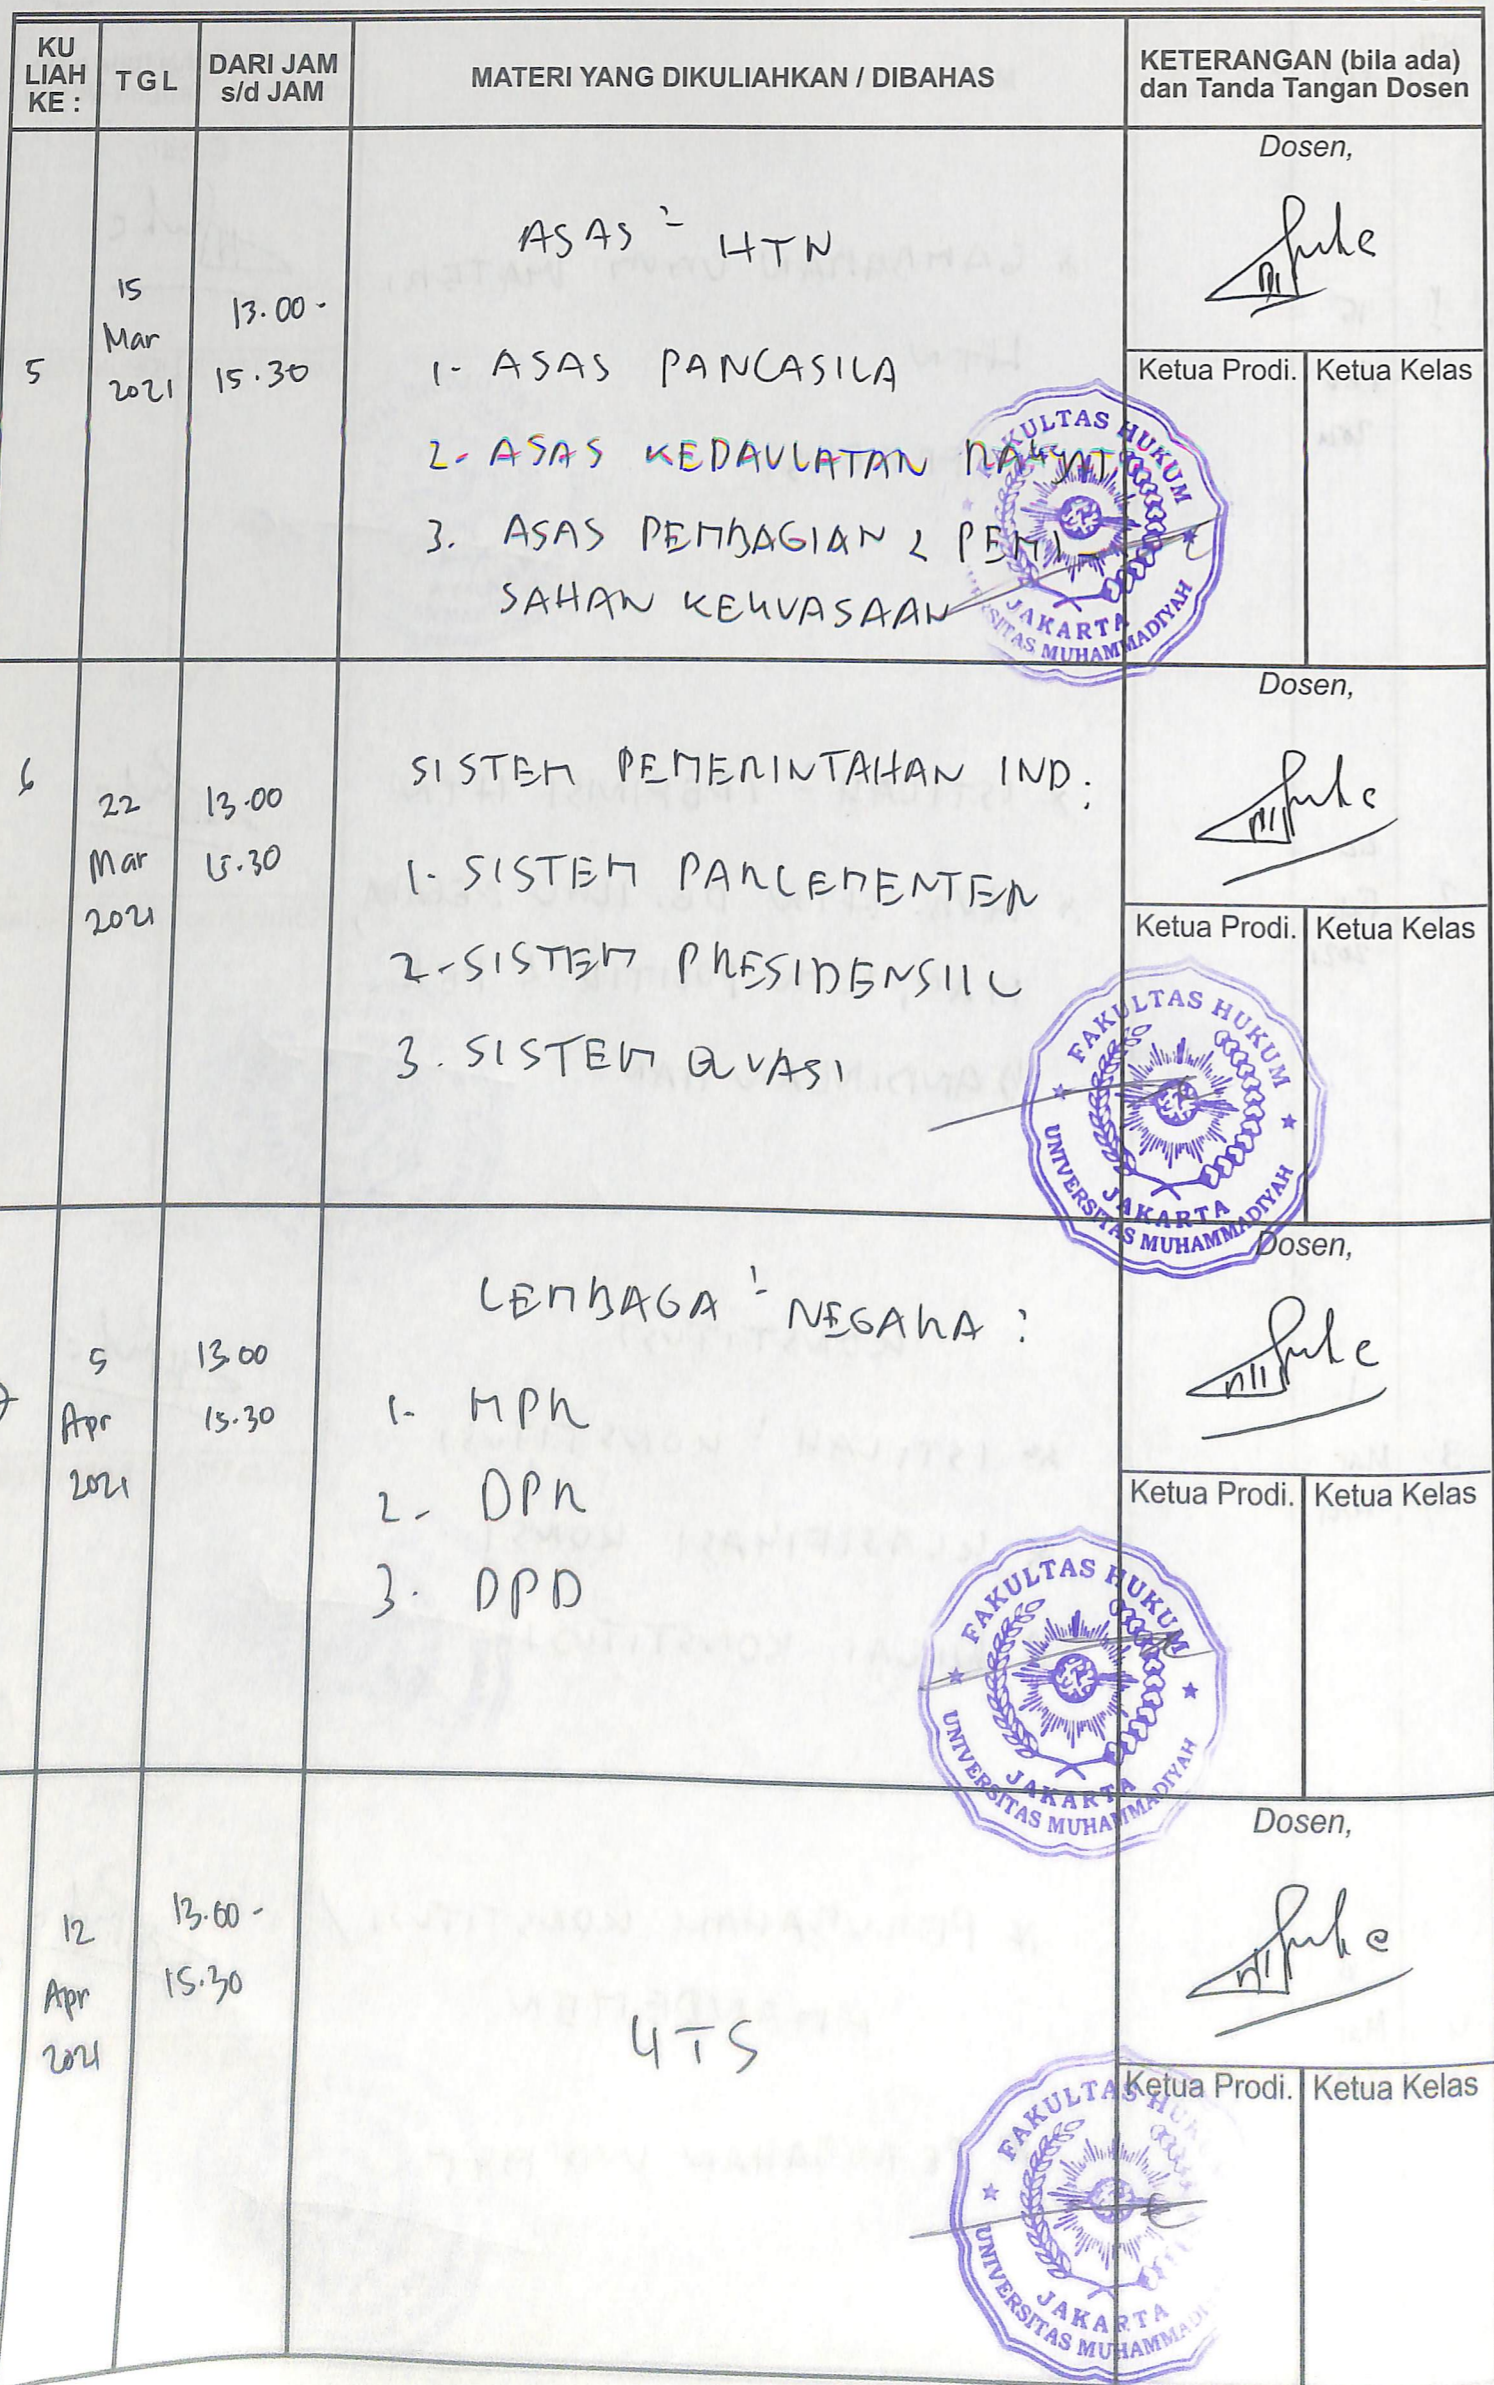 KU LIAH KE :
TGL
DARI JAM s/d JAM
MATERI YANG DIKULIAHKAN / DIBAHAS
KETERANGAN (bila ada) dan Tanda Tangan Dosen
5
15
Mar
2021
13.00 -
15.30
ASAS² HTN
1- ASAS PANCASILA
2- ASAS KEDAULATAN RAKYAT
3. ASAS PEMBAGIAN & PEMI
SAHAN KEKUASAAN
Dosen,
Ketua Prodi. Ketua Kelas
FAKULTAS HUKUM
JAKARTA
UNIVERSITAS MUHAMMADIYAH
6
22
Mar
2021
13.00
15.30
SISTEM PEMERINTAHAN IND :
1- SISTEM PARLEMENTER
2- SISTEM PRESIDENSIIL
3. SISTEM QUASI
Dosen,
Ketua Prodi. Ketua Kelas
FAKULTAS HUKUM
JAKARTA
UNIVERSITAS MUHAMMADIYAH
7
5
Apr
2021
13.00
15.30
LEMBAGA² NEGARA :
1- MPR
2- DPR
3. DPD
Dosen,
Ketua Prodi. Ketua Kelas
FAKULTAS HUKUM
JAKARTA
UNIVERSITAS MUHAMMADIYAH
12
Apr
2021
13.00 -
15.30
UTS
Dosen,
Ketua Prodi. Ketua Kelas
FAKULTAS HUKUM
JAKARTA
UNIVERSITAS MUHAMMADIYAH